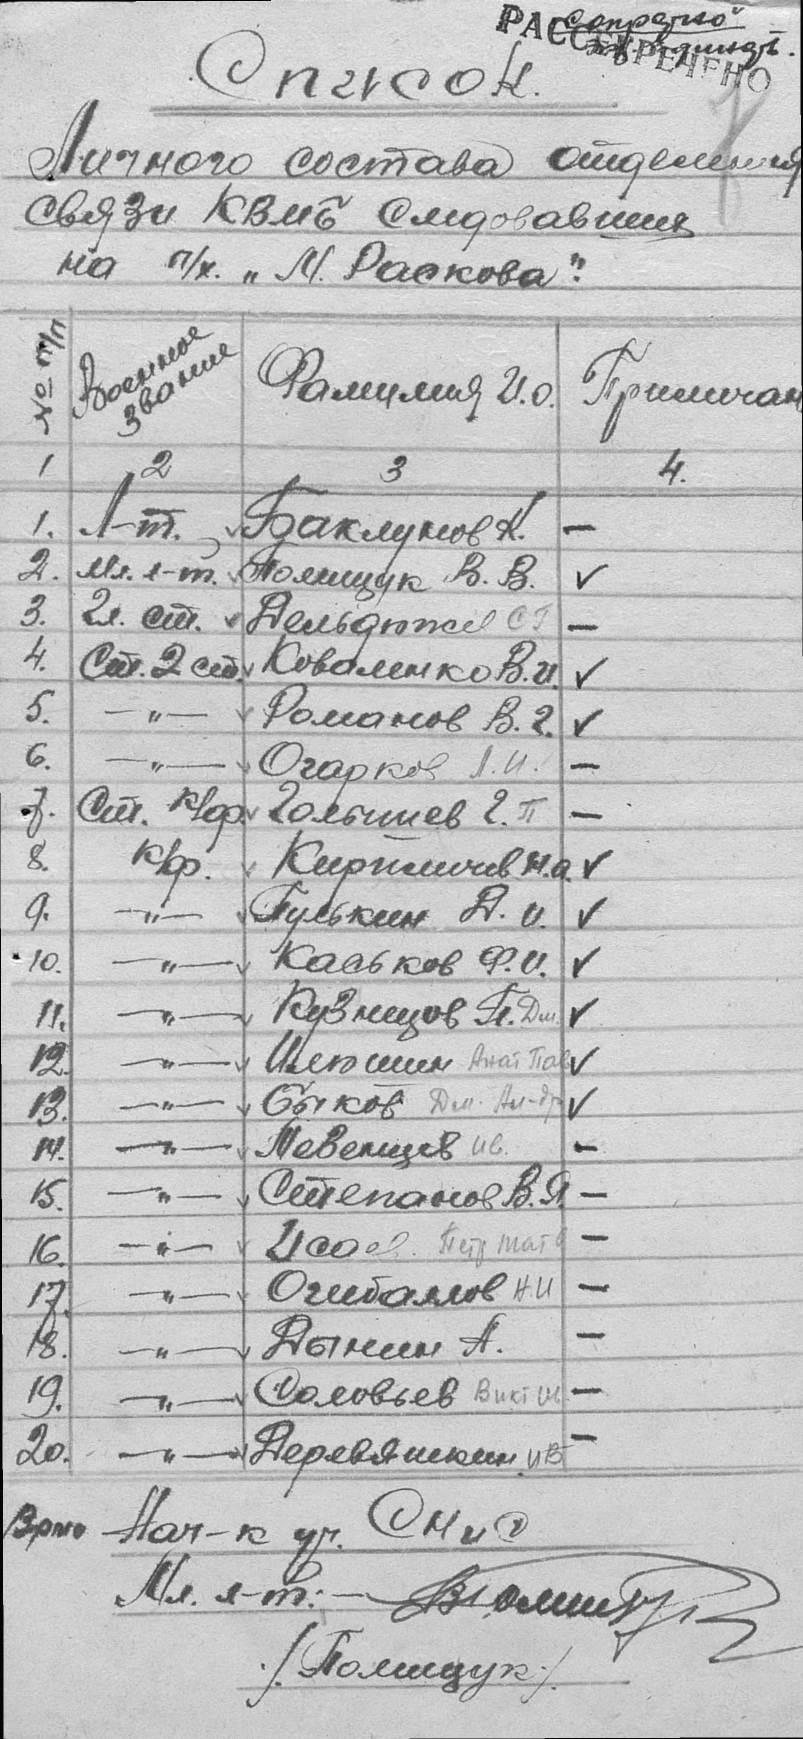 РАССЕКРЕЧЕНО
Список.
Личного состава отделения
связи КВМБ следовавших
на п/х. „М. Раскова".
№ п/п Военное звание Фамилия И.О. Примечан
1 2 3 4.
1. Л-т. Баклунов К. —
2. Мл. л-т. Полищук В. В. ✓
3. Гл. ст. —
4. Ст. 2 ст. Коваленко В. И. ✓
5. —"— Романов В. Г. ✓
6. —"— Огарков Л. И. —
7. Ст. к/ф. Голышев Г. П —
8. к/ф. Кирпичев Н. А. ✓
9. —"— Пулькин Д. И. ✓
10. —"— Каськов Ф. И. ✓
11. —"— Кузнецов П. Дм. ✓
12. —"— Илюшин Анат Пав ✓
13. —"— Быков Дм. Ал-др ✓
14. —"— Певенцев Ив. —
15. —"— Степанов В. Я. —
16. —"— Исаев. Петр Мат —
17. —"— Огибалов Н. И —
18. —"— Дынин А. —
19. —"— Соловьев Викт Ив. —
20. —"— Деревяшкин ИВ —
Врио Нач-к уч. СНиС
Мл. л-т. —
/Полищук/.